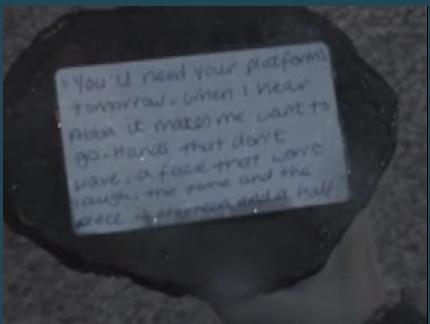 You'll need your platforms
tomorrow. When I hear
Abba it makes me want to
go. Hands that don't
wave, a face that won't
laugh, the time and the
place is thirteen and a half